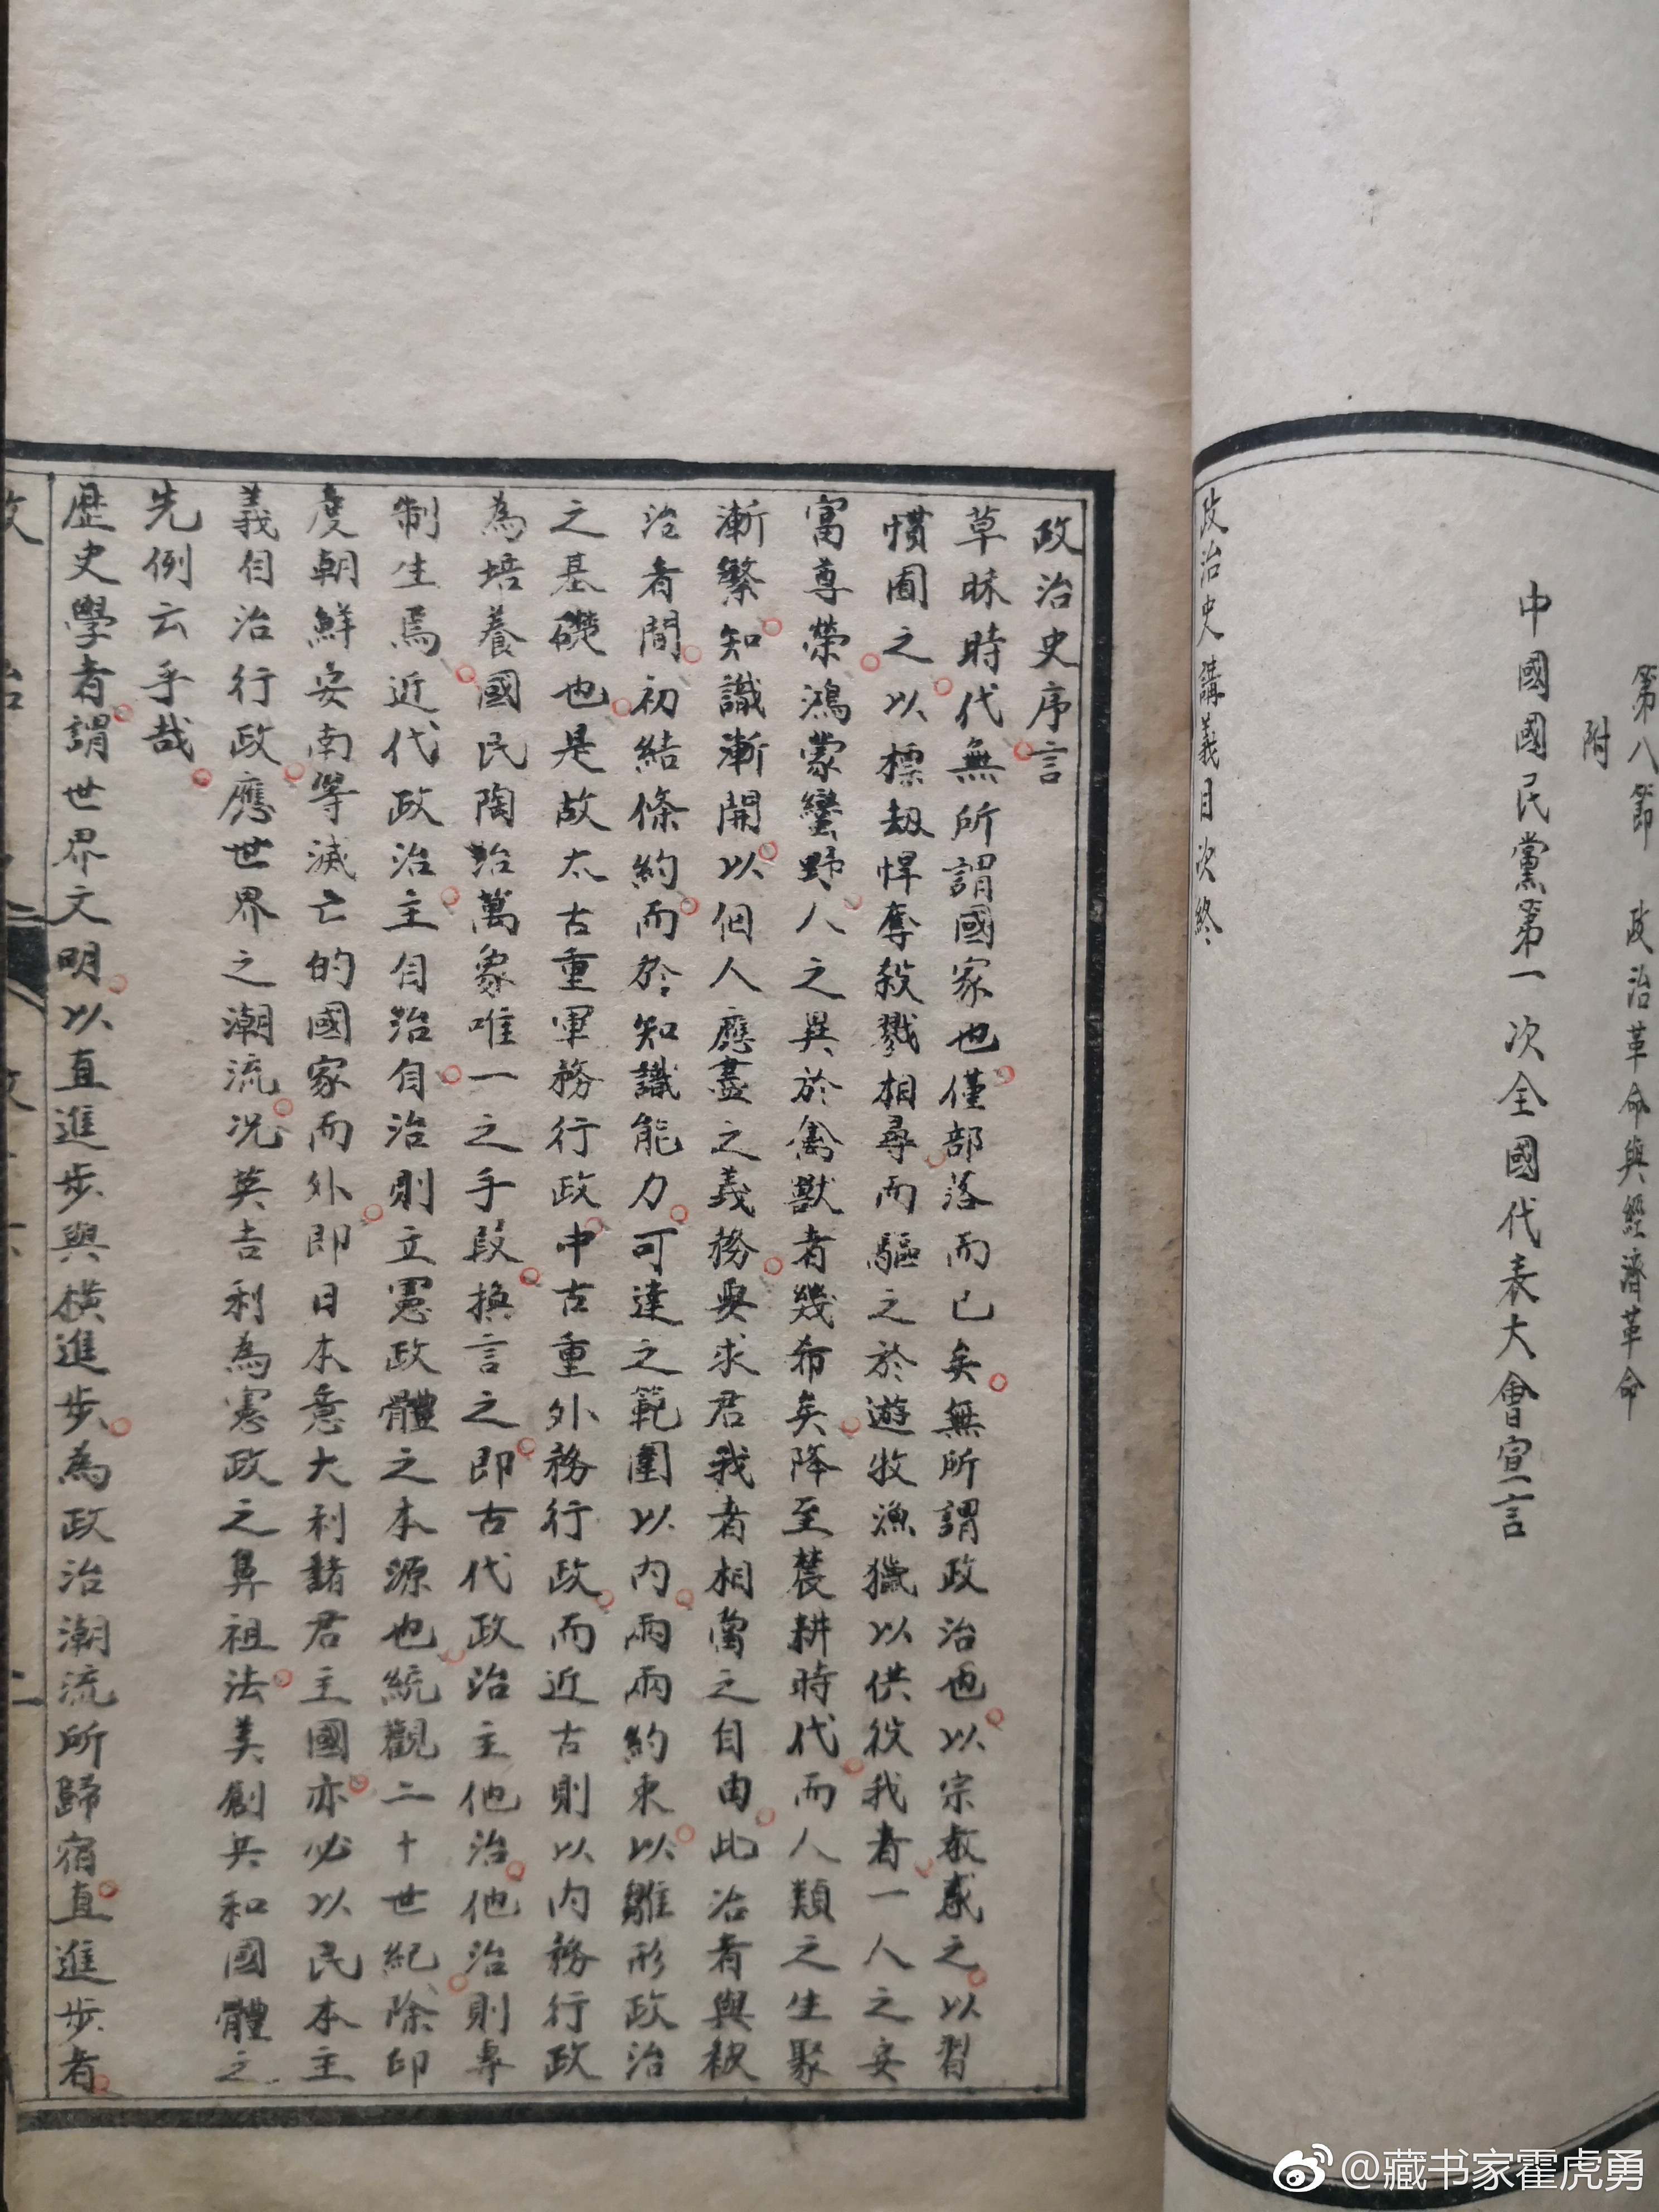 第八節 政治革命與經濟革命
附
中國國民黨第一次全國代表大會宣言
政治史講義目次終
政治史序言
草昧時代無所謂國家也僅部落而已矣無所謂政治也以宗教惑之以習
慣囿之以標劫悍奪殺戮相尋而驅之於遊牧漁獵以供役我者一人之安
富尊榮鴻蒙蠻野人之異於禽獸者幾希矣降至農耕時代而人類之生聚
漸繁知識漸開以個人應盡之義務要求君我者相當之自由此治者與被
治者間初結條約而於知識能力可達之範圍以內兩兩約束以雛形政治
之基礎也是故太古重軍務行政中古重外務行政而近古則以內務行政
為培養國民陶治萬象唯一之手段換言之即古代政治主他治他治則專
制生焉近代政治主自治自治則立憲政體之本源也統觀二十世紀除印
度朝鮮安南等滅亡的國家而外即日本意大利諸君主國亦必以民本主
義自治行政應世界之潮流況英吉利為憲政之鼻祖法美創共和國體之
先例云乎哉
歷史學者謂世界文明以直進步與橫進步為政治潮流所歸宿直進步者
@藏书家霍虎勇